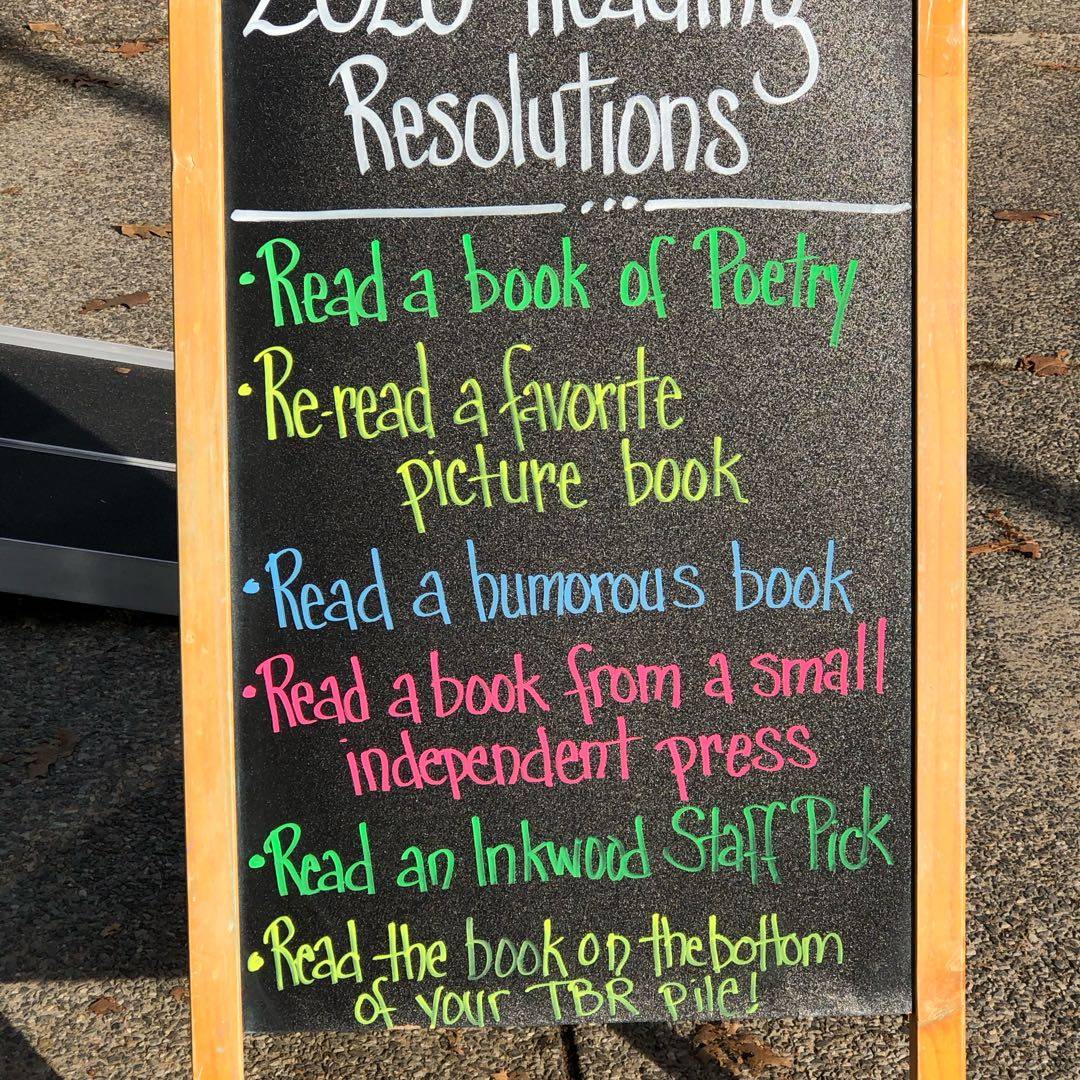 2020 Reading
Resolutions
• Read a book of Poetry
• Re-read a favorite
picture book
• Read a humorous book
• Read a book from a small
independent press
• Read an Inkwood Staff Pick
• Read the book on the bottom
of your TBR pile!